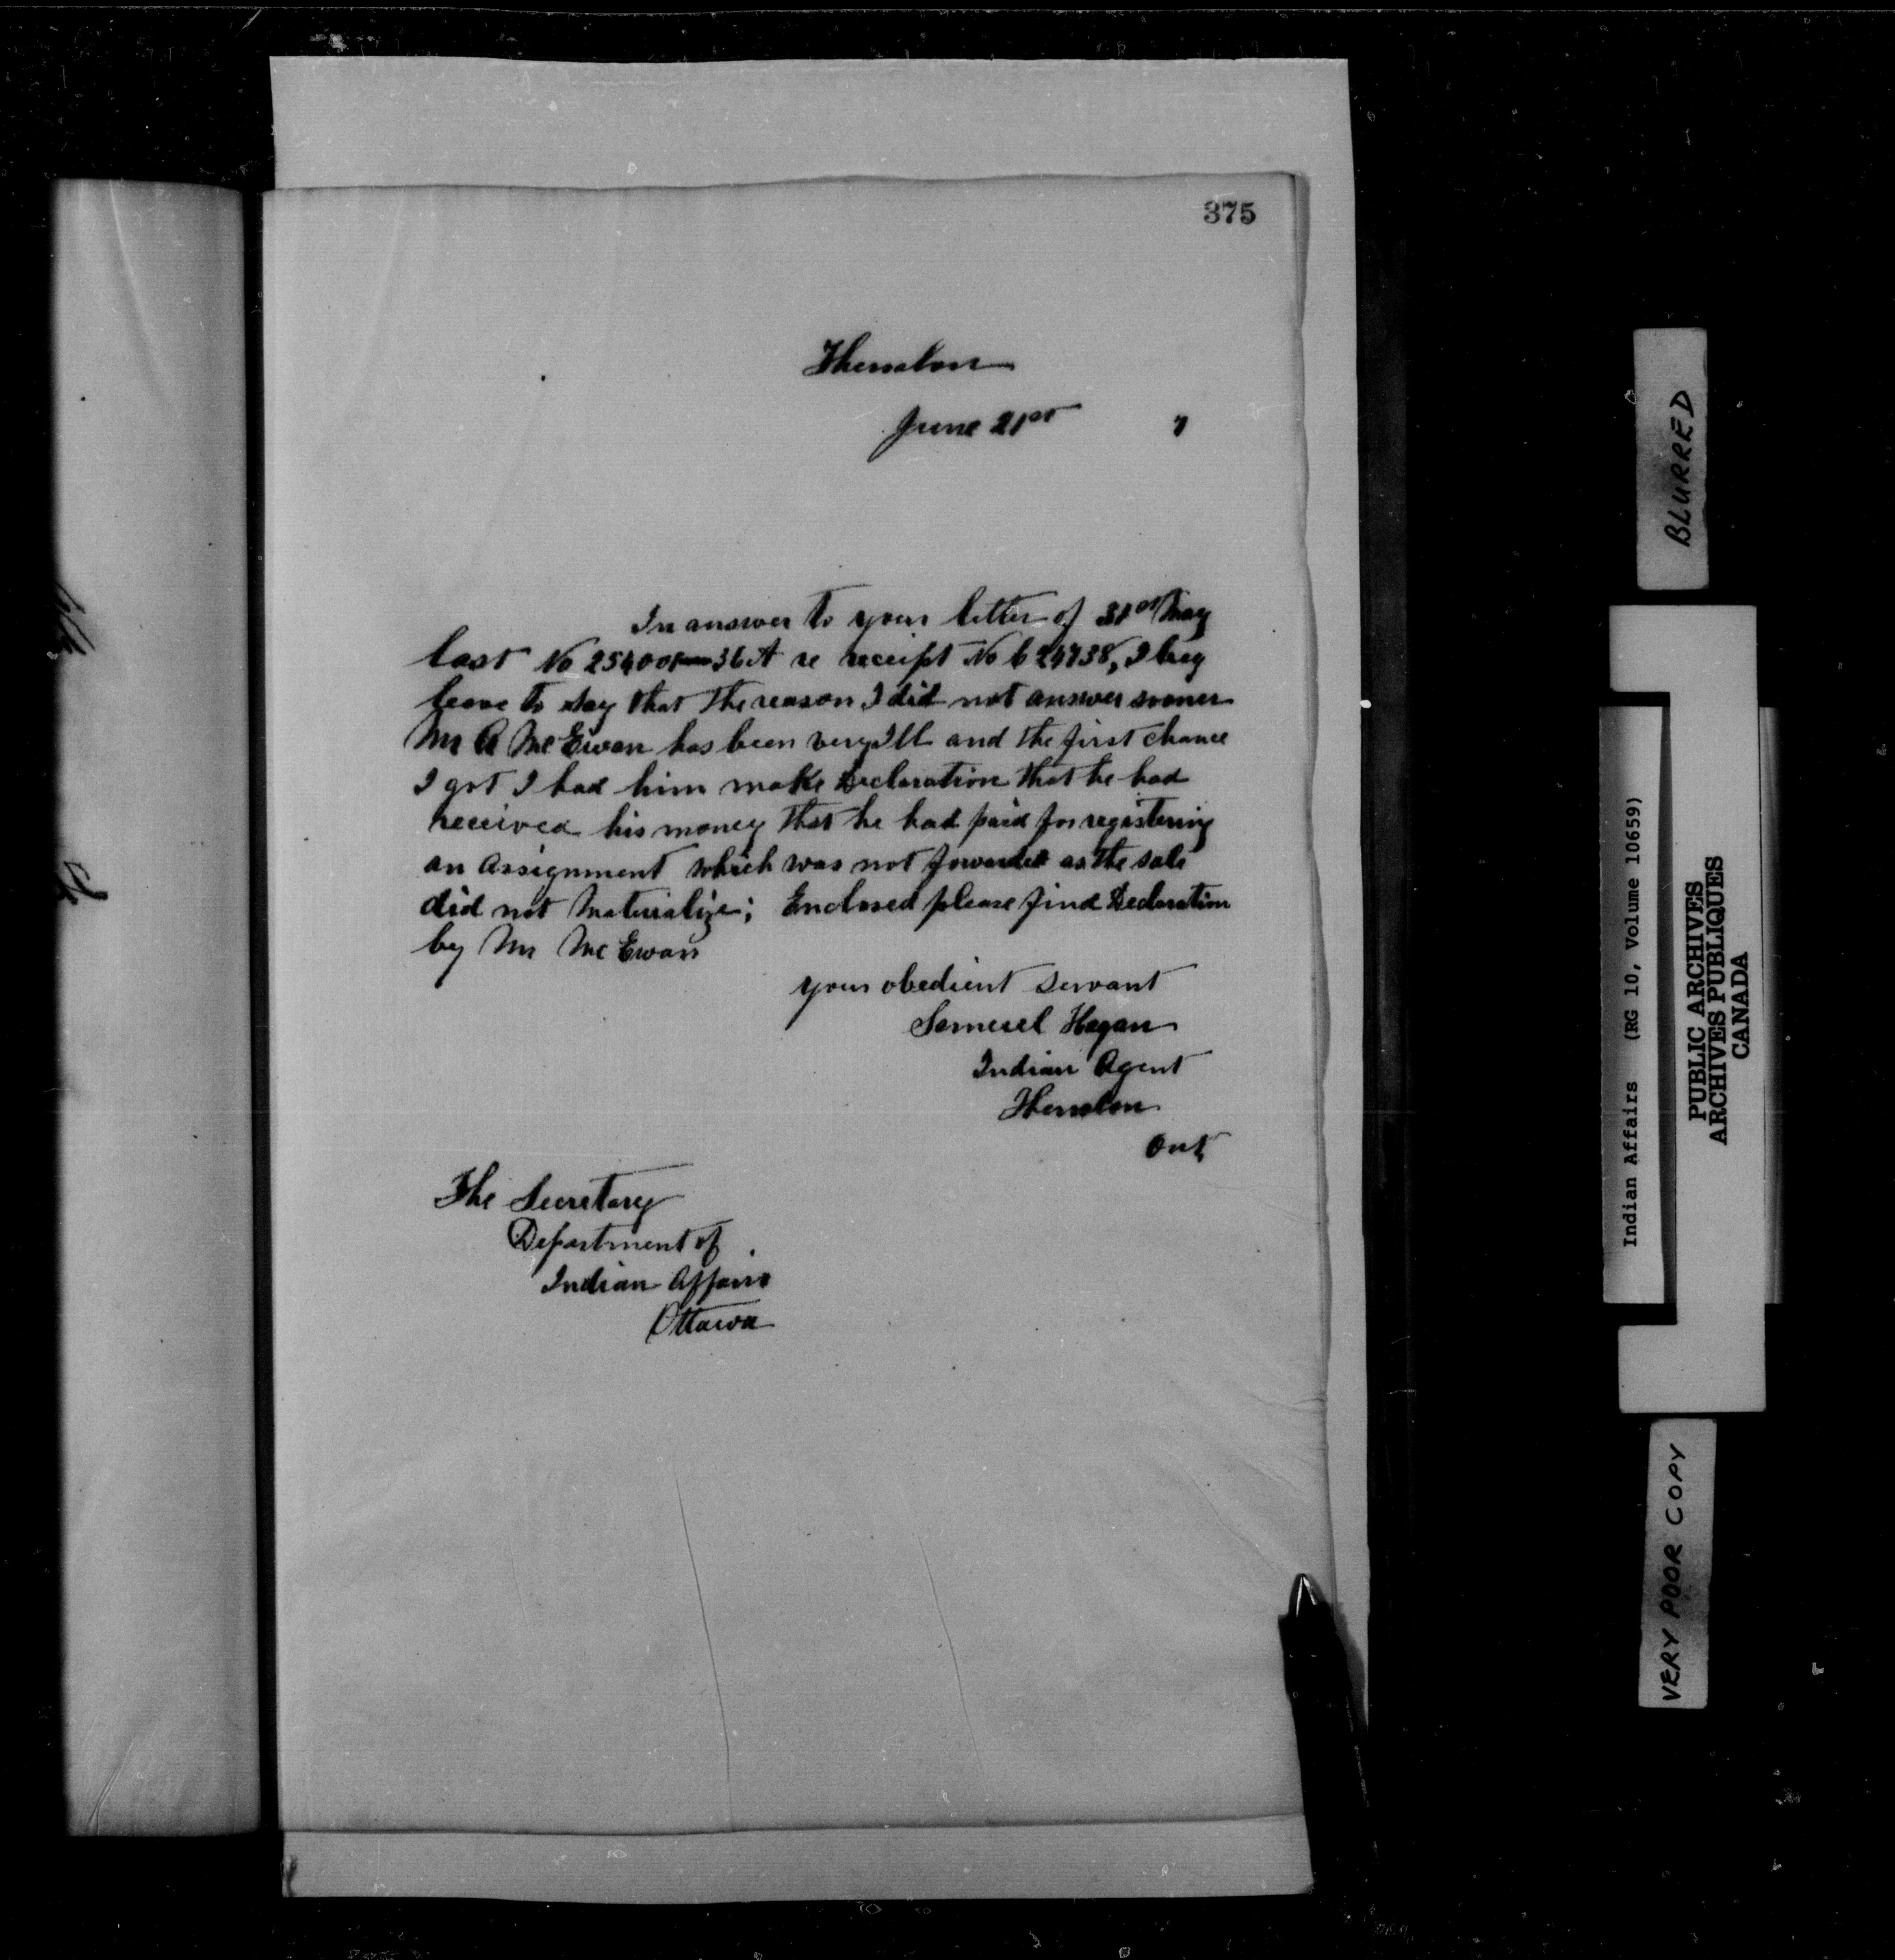 375
Thessalon
June 21st 7
In answer to your letter of 31st May
last No 254001 36 A re receipt No 624738, I beg
leave to say that the reason I did not answer sooner
Mr A McEwan has been very Ill and the first chance
I got I had him make Declaration that he had
received his money that he had paid for registering
an assignment which was not forwarded as the sale
did not Materialize; Enclosed please find Declaration
by Mr McEwan
your obedient servant
Samuel Hagan
Indian Agent
Thessalon
Ont
The Secretary
Department of
Indian Affairs
Ottawa
BLURRED
Indian Affairs (RG 10, Volume 10659)
PUBLIC ARCHIVES
ARCHIVES PUBLIQUES
CANADA
VERY POOR COPY